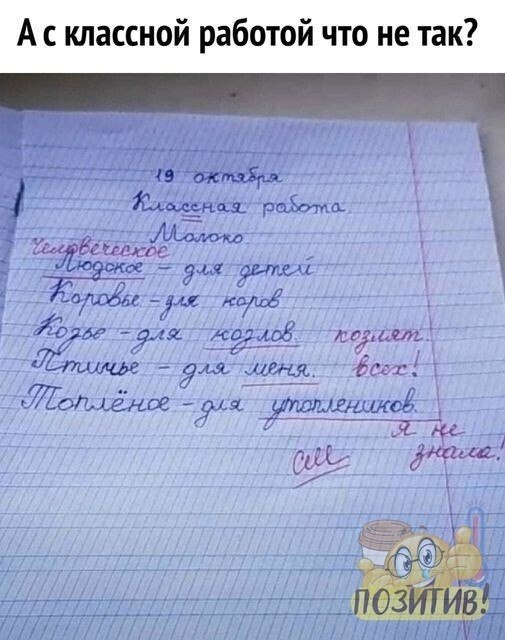 А с классной работой что не так?
19 октября
Классная работа.
Молоко
Человеческое
Людское – для детей
Коровье – для коров
Козье – для козлов. козлят.
Птичье – для меня. всех!
Топлёное – для утоплеников.
я не
см знала!
ПОЗИТИВ!